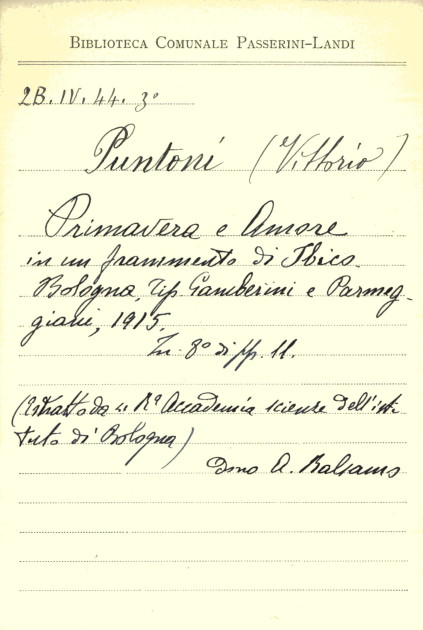 BIBLIOTECA COMUNALE PASSERINI-LANDI
2B. IV. 44. 3°
Puntoni (Vittorio)
Primavera e Amore
in un frammento di Ibico.
Bologna, Tip Gamberini e Parmeg-
giani, 1915.
In 8° di pp. 11.
(Estratto da "Rª Accademia scienze dell'isti
tuto di Bologna)
Dono A. Balsamo